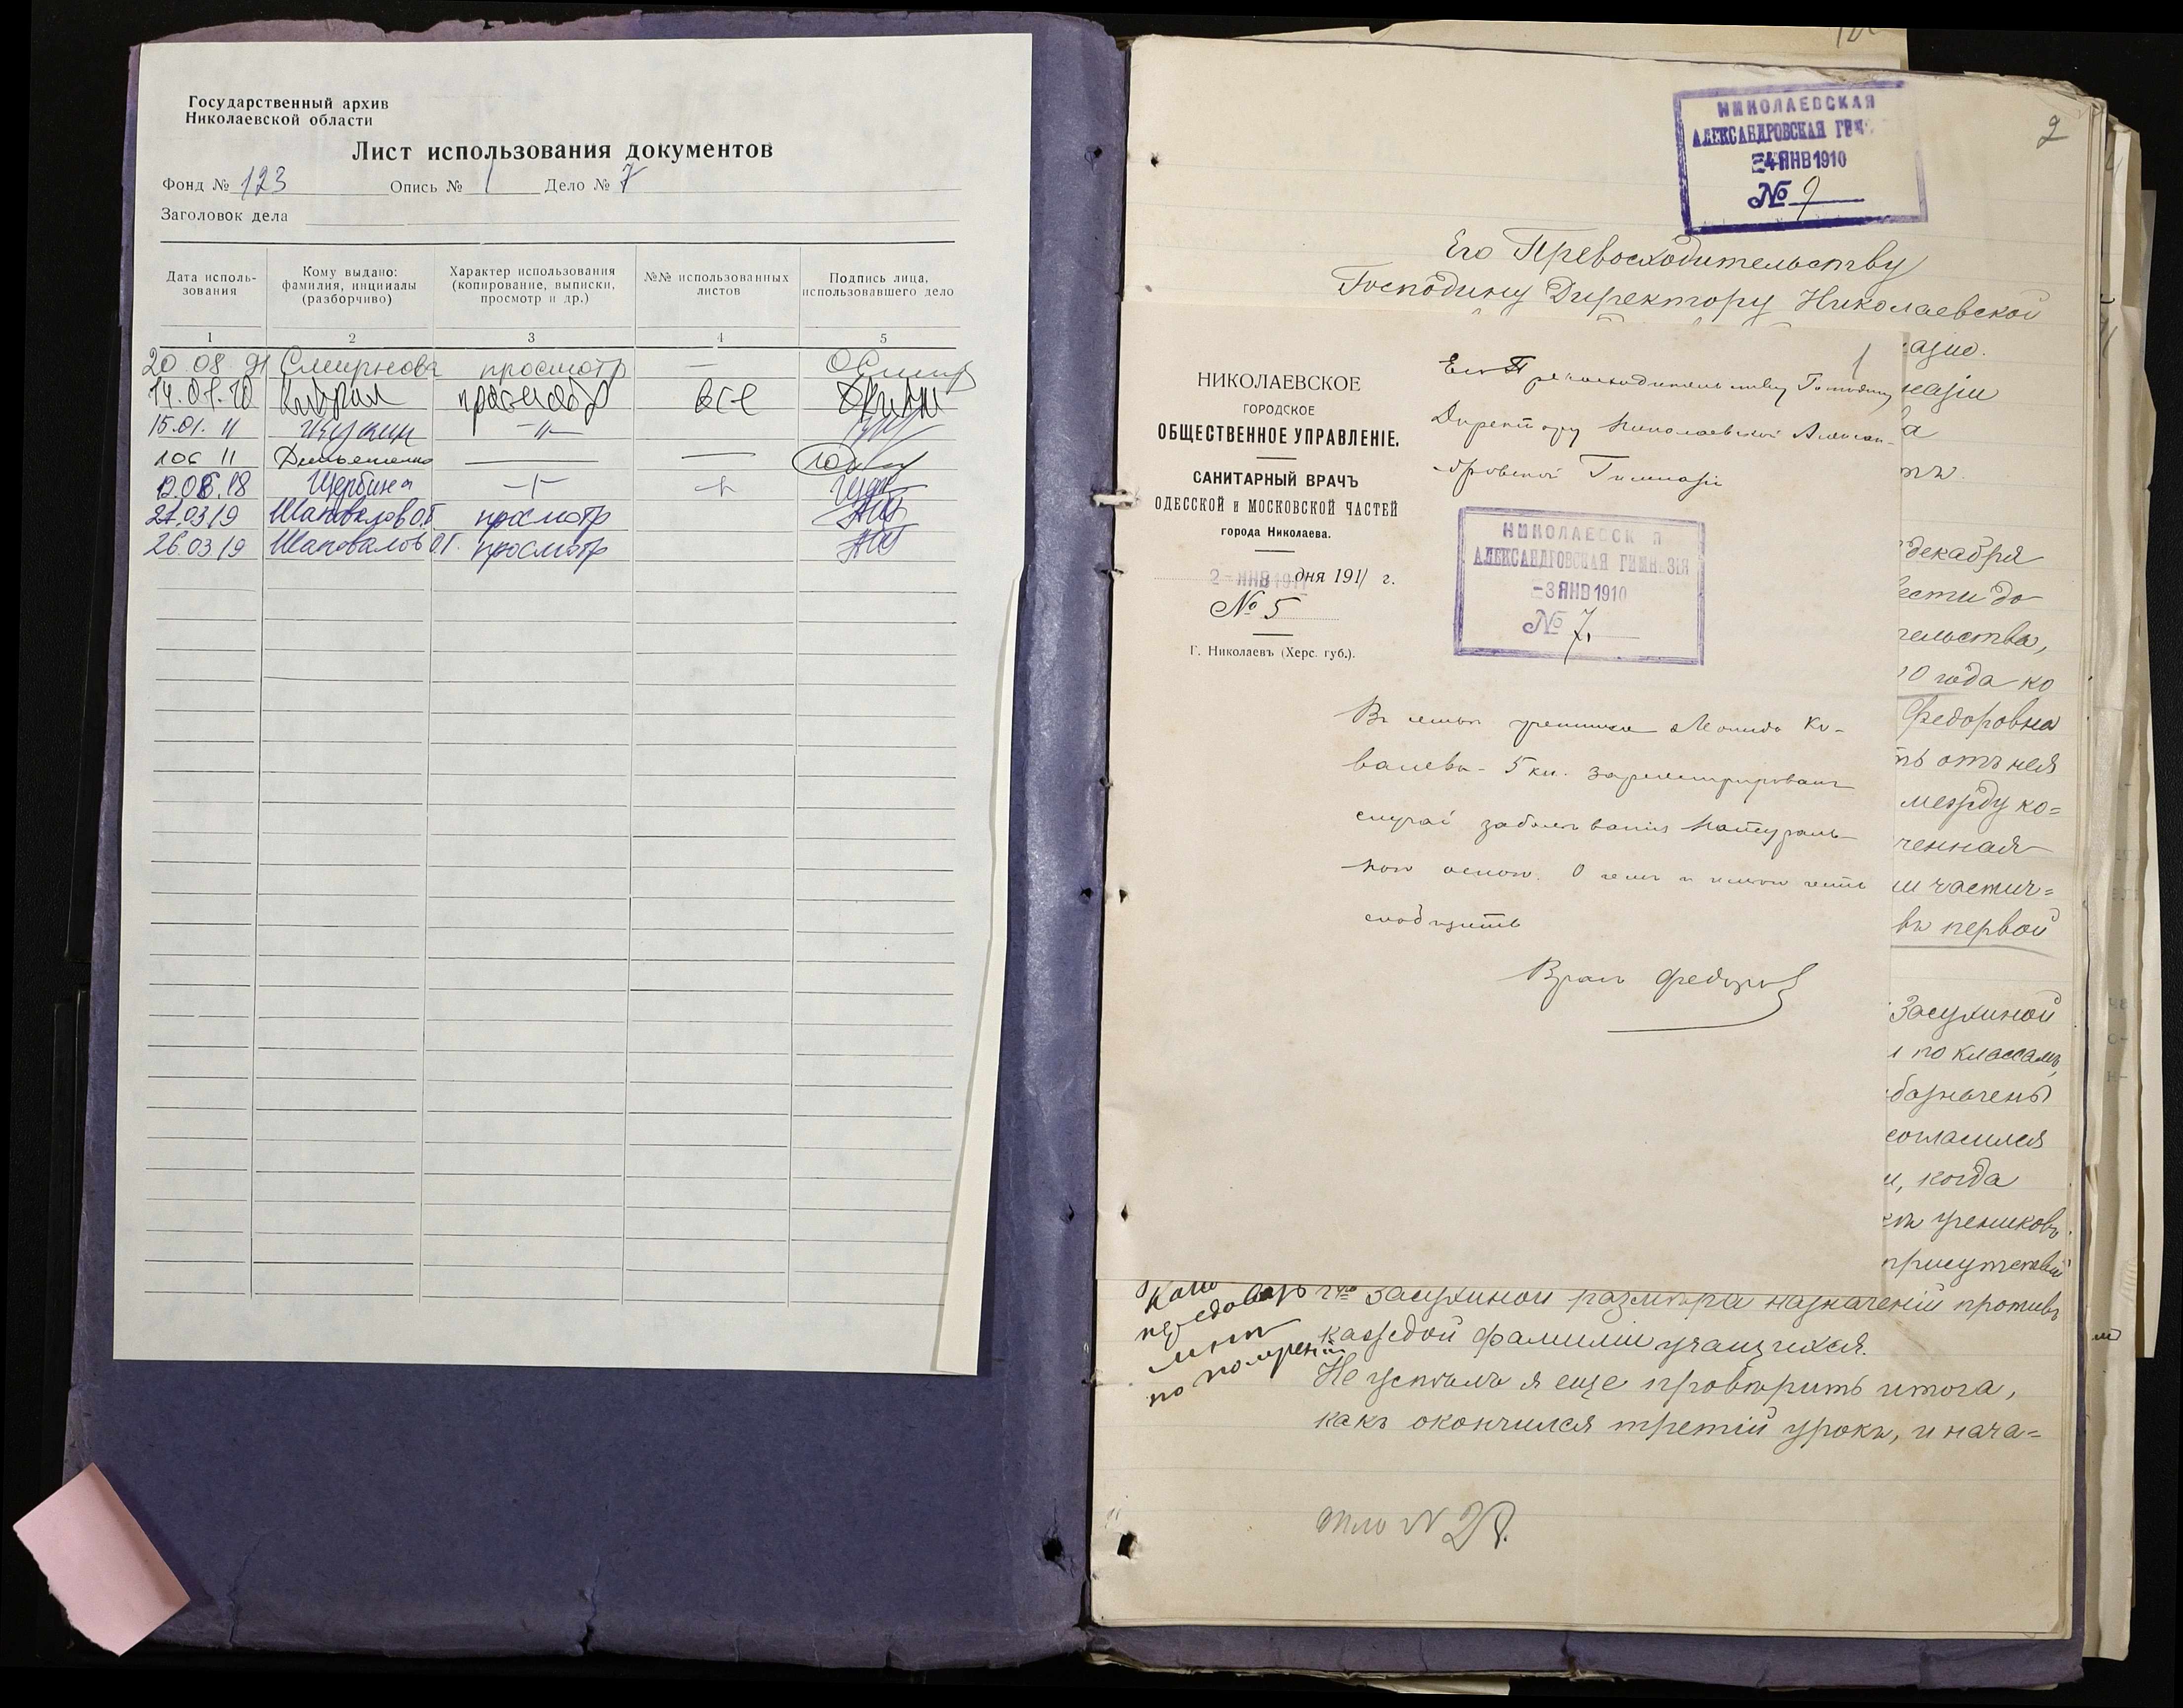 Государственный архив
Николаевской области
Лист использования документов
Фонд № 123 Опись № 1 Дело № 7
Заголовок дела
Дата исполь-
зования
Кому выдано:
фамилия, инициалы
(разборчиво)
Характер использования
(копирование, выписки,
просмотр и др.)
№№ использованных
листов
Подпись лица,
использовавшего дело
1 2 3 4 5
20.08.91 Смирнова просмотр —
все
15.01.11 -"-
Щербина
21.03.19 Шаповалов О.Г. просмотр
26.03.19 Шаповалов О.Г. просмотр
НИКОЛАЕВСКАЯ
АЛЕКСАНДРОВСКАЯ ГИМ
-4 ЯНВ 1910
№ 9
2
Его Превосходительству
Господину Директору Николаевской
1
НИКОЛАЕВСКОЕ
ГОРОДСКОЕ
ОБЩЕСТВЕННОЕ УПРАВЛЕНІЕ.
САНИТАРНЫЙ ВРАЧЪ
ОДЕССКОЙ и МОСКОВСКОЙ ЧАСТЕЙ
города Николаева.
2 - ЯНВ 1911 дня 1911 г.
№ 5
Г. Николаевъ (Херс. губ.).
Его Превосходительству Господину
Директору Николаевской Алексан-
дровской Гимназіи
НИКОЛАЕВСК Я
АЛЕКСАНДРОВСКАЯ ГИМН ЗІЯ
-3 ЯНВ 1910
№ 7.
Въ семьѣ ученика Леонида Ко-
валева - 5 кл. зарегистрированъ
случай заболѣванія натураль-
ной оспой. О чемъ и имѣю честь
сообщить
Врачъ Федоров
азію.
назіи
а
тъ.
декабря
вести до
тельства,
10 года ко
Федоровна
ть отъ нея
между ко=
ченная
и частич=
въ первой
Засухиной
и по классамъ,
бозначены
согласился
и, когда
учениковъ
присутствіи
г-жѣ Засухиной размѣра назначеній противъ
каждой фамиліи учащихся.
Не успѣлъ я еще провѣрить итога,
какъ окончился третій урокъ, и нача=